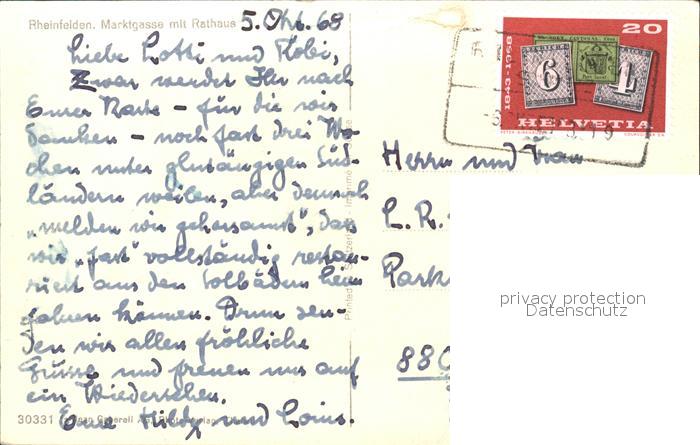 Rheinfelden. Marktgasse mit Rathaus
5. Okt. 68
Liebe Lotti und Robi,
Zwar werdet Ihr nach
Eurer Karte – für die wir
danken – noch fast drei Wo-
chen unter glutäugigen Süd-
ländern weilen, aber dennoch
"melden wir gehorsamst", dass
wir "fast" vollständig restau-
riert aus den Solbädern heim
fahren können. Drum sen-
den wir allen fröhliche
Grüsse und freuen uns auf
ein Wiedersehen.
Eure Hildy und Louis.
30331
Printed in Switzerland - Imprimé
20
1843-1968
6
4
HELVETIA
Herrn und Frau
L. R.
Park
880
privacy protection
Datenschutz